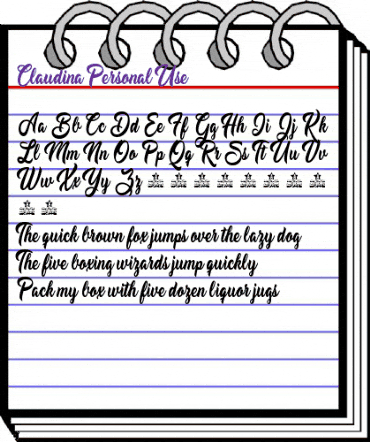 Claudina Personal Use
Aa Bb Cc Dd Ee Ff Gg Hh Ii Jj Kk
Ll Mm Nn Oo Pp Qq Rr Ss Tt Uu Vv
Ww Xx Yy Zz
The quick brown fox jumps over the lazy dog
The five boxing wizards jump quickly
Pack my box with five dozen liquor jugs